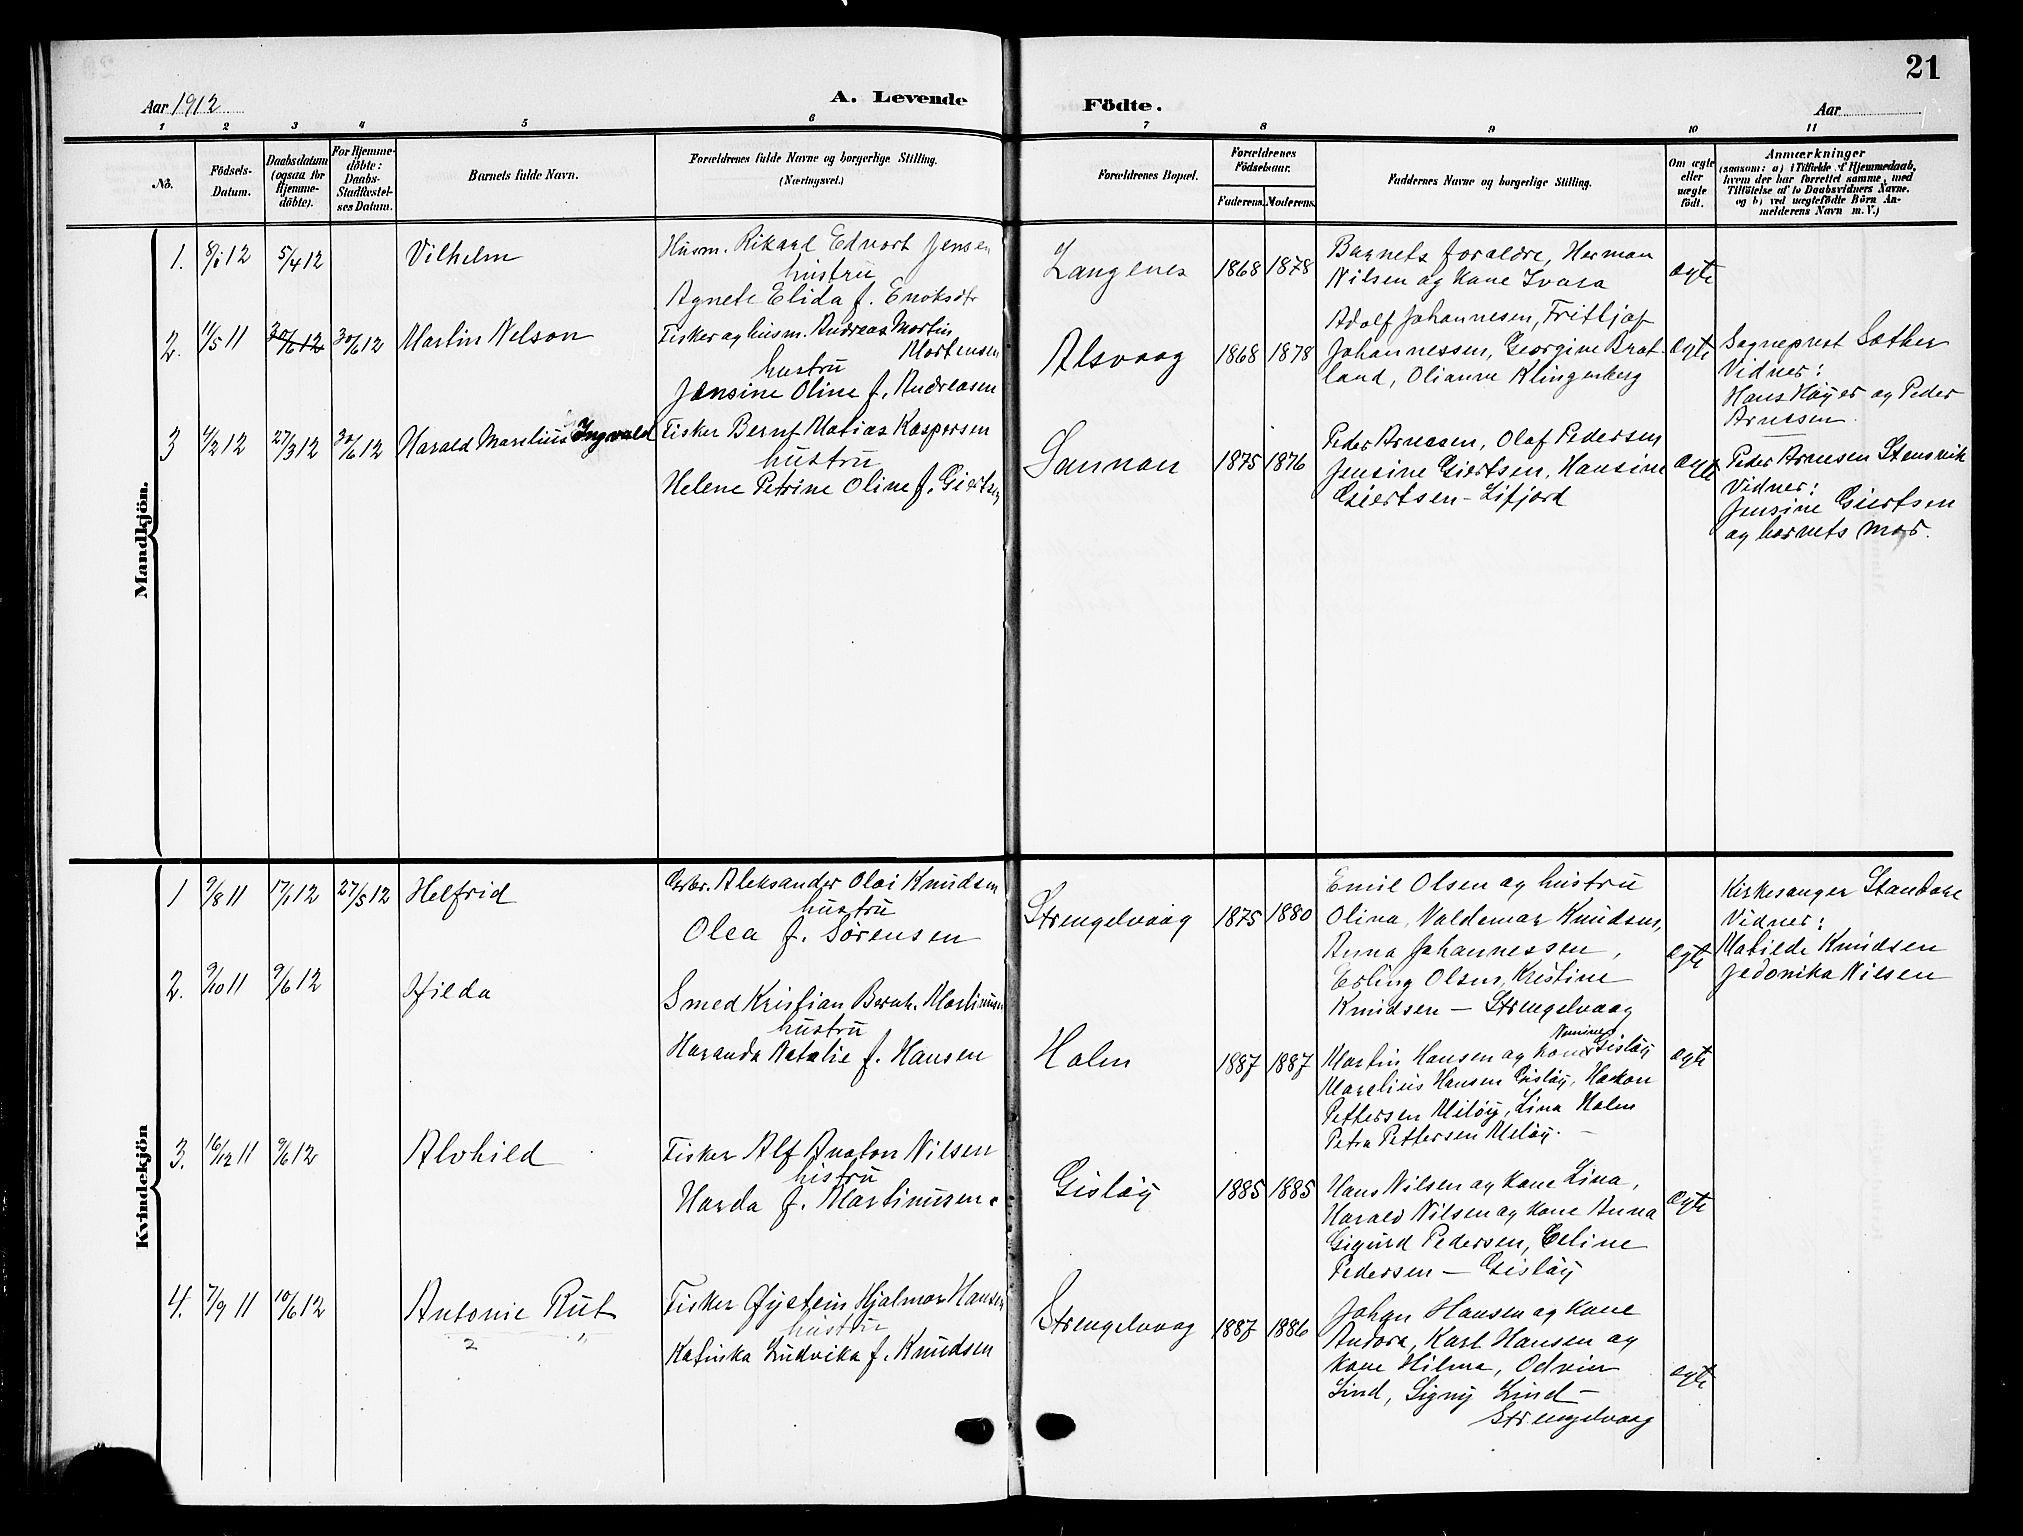 21
Aar 1912
A. Levende
Födte.
Aar
1 2 3 4 5 6 7 8 9 10 11
No.
Födsels-
Datum.
Daabsdatum
(ogsaa for
Hjemme-
döbte).
For Hjemme-
döbte:
Daabs-
Stadfæstel-
ses Datum.
Barnets fulde Navn.
Forældrenes fulde Navne og borgerlige Stilling.
(Næringsvei.)
Forældrenes Bopæl.
Forældrenes
Födselsaar.
Faderens. Moderens.
Faddernes Navne og borgerlige Stilling.
Om ægte
eller
uægte
födt.
Anmærkninger
(saasom: a) i Tilfælde af Hjemmedaab,
hvem der har forrettet samme, med
Tilföielse af to Daabsvidners Navne.
og b) ved uægtefödte Börn An-
melderens Navn m. V.)
Mandkjön.
1. 8/1 12 5/4 12 Vilhelm
Husm. Rikard Edvart Jensen
hustru
Agnete Elida f. Enoksdtr
Langenes 1868 1878
Barnets foraldre, Herman
Nilsen og kone Ivara
ægte
2. 11/5 11 30/6 12 30/6 12 Martin Nelson
Fisker og husm. Andreas Martin
Mortensen
hustru
Jensine Oline f. Andreasen
Alsvaag 1868 1878
Adolf Johannesen, Fritljof
Johannessen, Georgine Brat-
land, Olianne Klingenberg
ægte
Sogneprest Sæther
Vidner:
Hans Høyer og Peder
Arnesen.
3 4/2 12 27/3 12 30/6 12 Harald Marelius Ingvald
Fisker Bernt Matias Kaspersen
hustru
Helene Petrine Oline f. Giertsen
Sannan 1875 1876
Peder Arnesen, Olaf Pedersen
Jensine Giertsen, Hansine
Giertsen - Lifjord
ægte
Peder Arnesen Stensvik
Vidner:
Jensine Giertsen
og barnets mor.
Kvindekjön
1 9/8 11 17/1 12 27/5 12 Helfrid
Aleksander Olai Knudsen
hustru
Olea f. Sørensen
Strengelvaag 1875 1880
Emil Olsen og hustru
Olina, Valdemar Knudsen,
Anna Johannessen,
Erling Olsen, Kristine
Knudsen - Strengelvaag
ægte
Kirkesanger
Vidner:
Matilde Knudsen
Jedonika Nilsen
2. 9/10 11 9/6 12 Hilda
Smed Kristian Bernh. Martinusen
hustru
Haranda Natalie f. Hansen
Holm 1887 1887
Martin Hansen og kone Gisløy
Marelius Hansen Gisløy, Haakon
Pettersen Meløy, Lina Holm
Petra Pettersen Meløy. -
ægte
3. 16/12 11 9/6 12 Alvhild
Fisker Alf Anaton Nilsen
hustru
Harda f. Martinusen.
Gisløy 1885 1885
Hans Nilsen og kone Lina,
Harald Nilsen og kone Anna
Sigurd Pedersen, Celine
Pedersen - Gisløy
ægte
4. 7/9 11 10/6 12 Antonie Rut
2 "
Fisker Øystein Hjalmar Hansen
hustru
Katinka Ludvika f. Knudsen
Strengelvaag 1887 1886
Johan Hansen og kone
Andora, Karl Hansen og
kone Hilma, Odvin
Lind, Signy Lind -
Strengelvaag
ægte